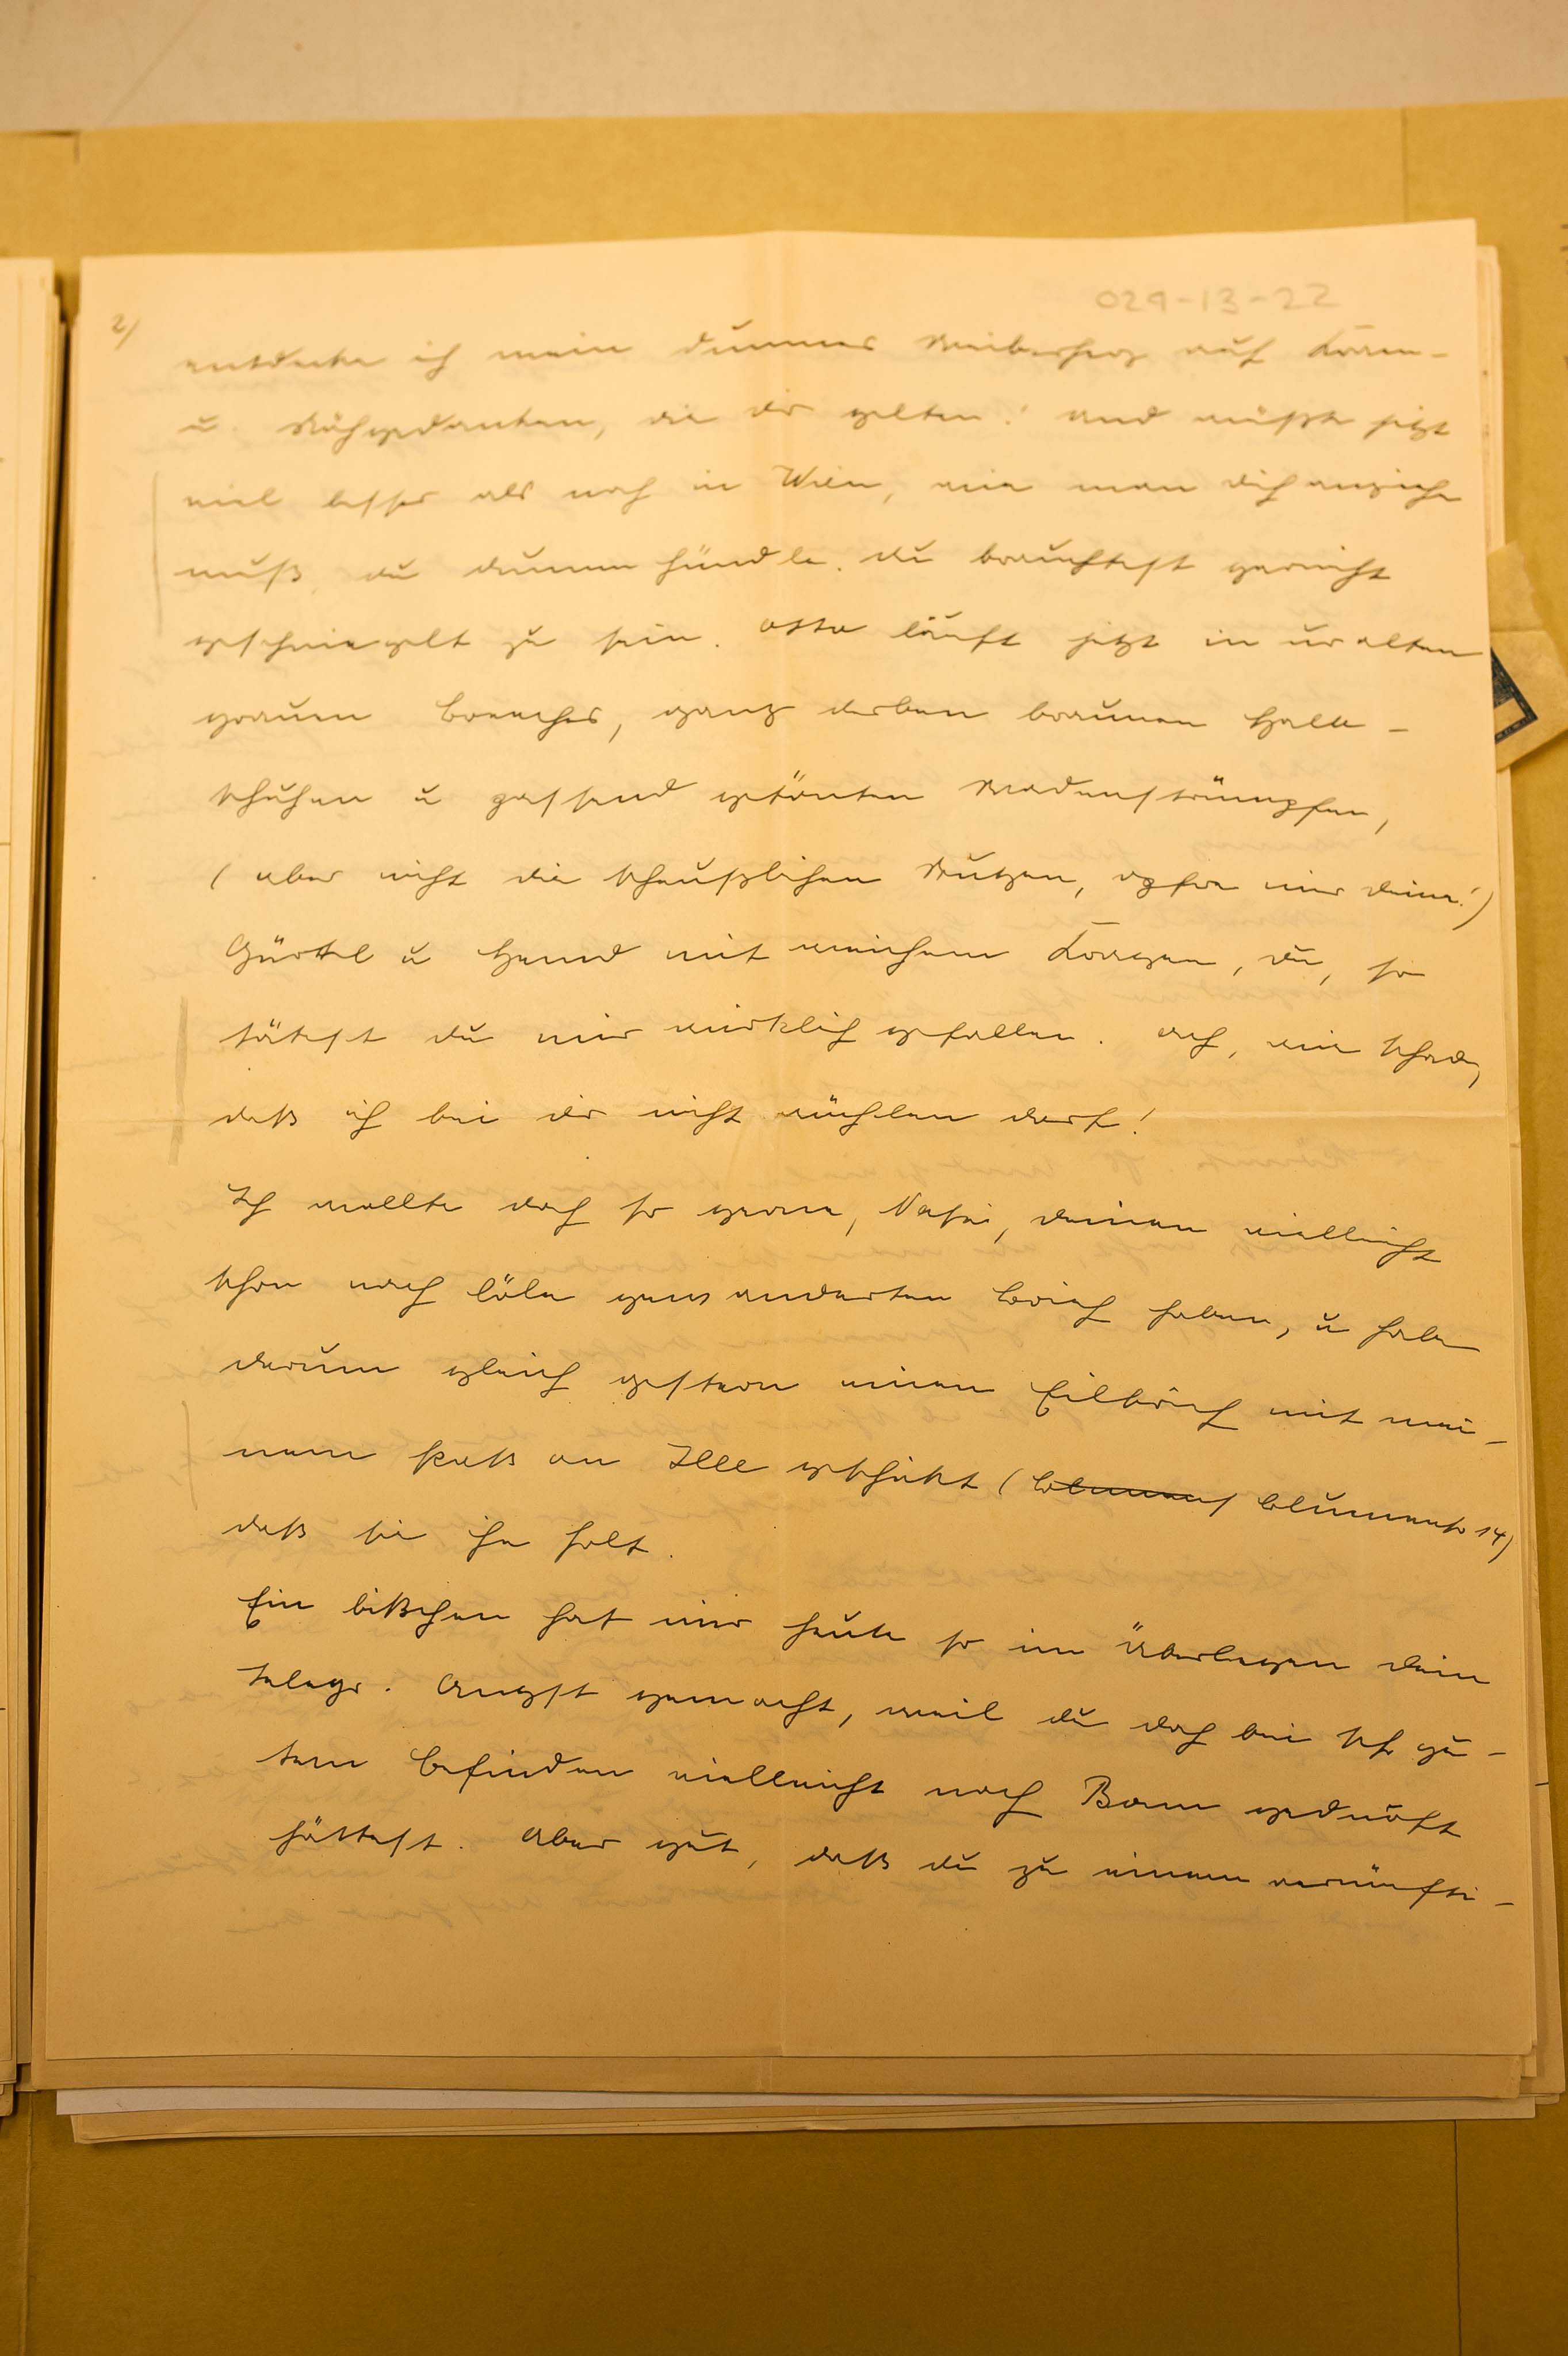 029-13-22
2/
entdecke ich mein dummes Weiberherz auf Kram-
u. Nähgedanken, die dir gelten! und wüßte jetzt
viel besser als noch in Wien, wie man dich anziehen
muß, du dummer Hündle. du brauchtest garnicht
geschniegelt zu sein. Otto läuft jetzt in uralten
grauen Breeches, ganz derben braunen Halb-
schuhen u passend getönten Wadenstrümpfen,
(aber nicht die scheußlichen Stutzen, opfre mir deine!)
Gürtel u Hemd mit weichem Kragen, du, so
tätest du mir wirklich gefallen. Ach, wie schade,
daß ich bei dir nicht wühlen darf!
Ich wollte doch so gerne, deinen vielleicht
schon nach gewanderten Brief haben, u habe
darum gleich gestern einen Eilbrief mit mei-
nem Pass an Ille geschickt ( Blumenstr 14)
dass sie ihn holt.
Ein bisschen hat mir heute so im Überlegen dein
Telegr. Angst gemacht, weil du doch bei sehr gu-
tem Befinden vielleicht nach Bonn gedurft
hättest. Aber gut, dass du zu einem vernünfti-